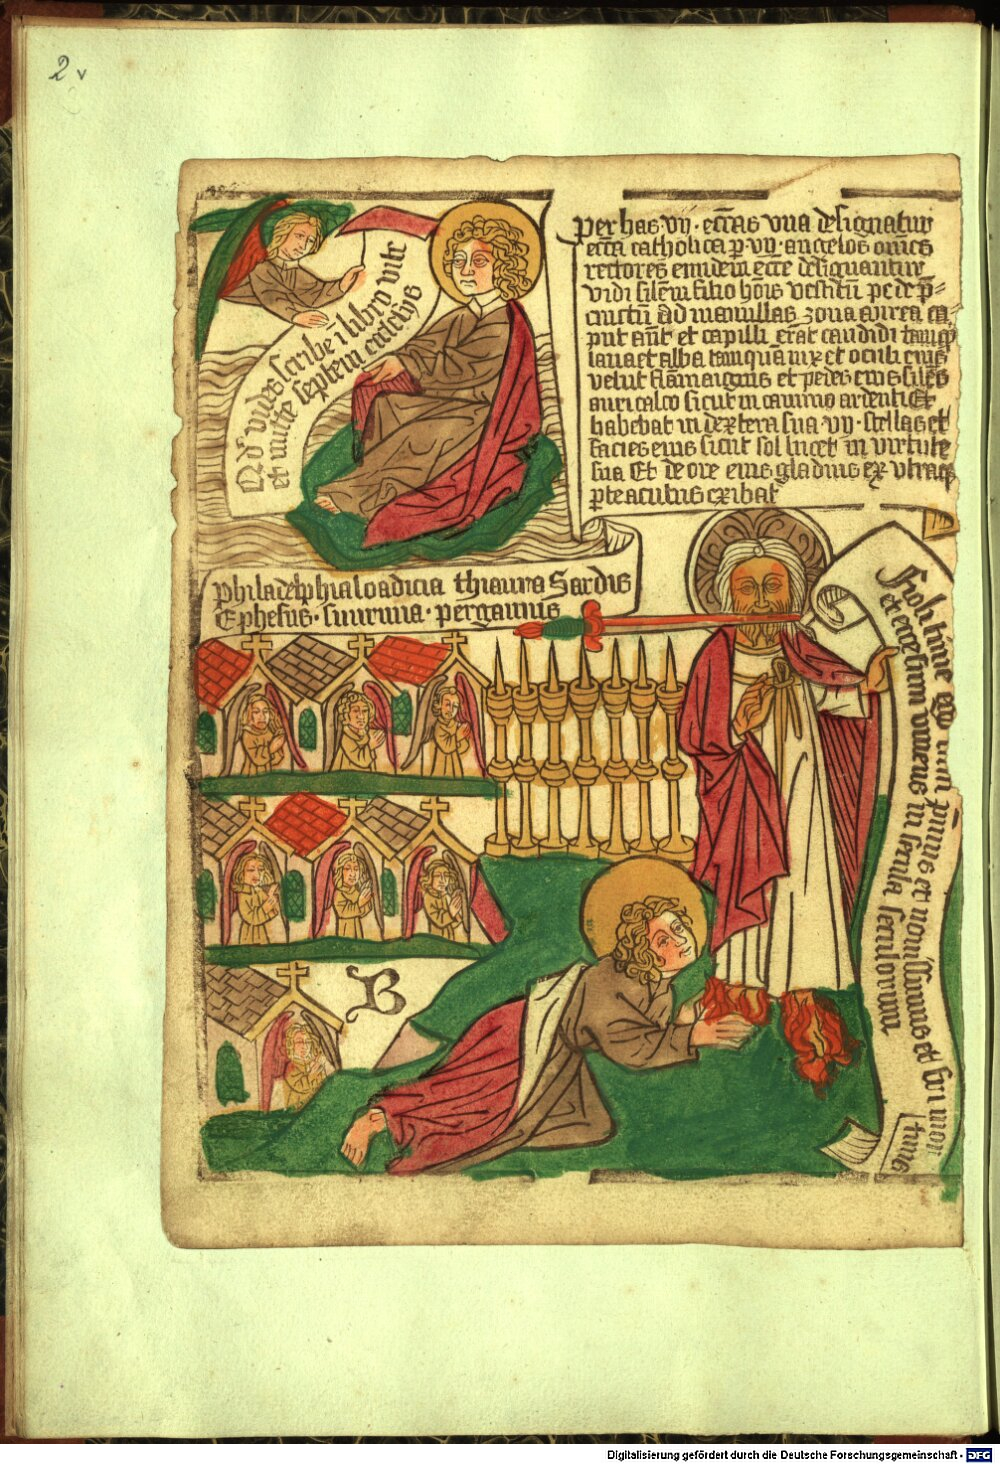 2v
Qd vides scribe i libro vite
et mitte septem ecclesijs
Per has vij · ecclas vna designatur
eccla catholica p vij · angelos omnes
rectores eiusdem eccle designantur
vidi silem filio hois vestitu podere p=
cinctu ad mamillas zona aurea ca=
put aut et capilli erat candidi tamqz
lana et alba tamquam nix et oculi eius
velut flamma ignis et pedes eius siles
auricalco sicut in camino ardenti Et
habebat in dextera sua vij · stellas et
facies eius sicut sol lucet in virtute
sua Et de ore eius gladius ex vtraqz
pte acutus exibat
philadelphia loadicia thiatira Sardis
Ephesus · smirnia · pergamus
Noli time ego sum primus et nouissimus et fui mor
tuus
et ecce sum viuens in secula seculorum
B
Digitalisierung gefördert durch die Deutsche Forschungsgemeinschaft - DFG